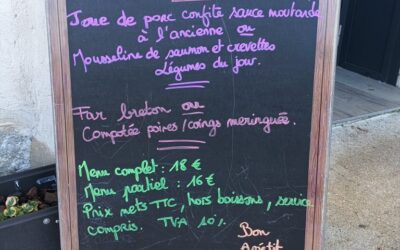 Joue de porc confite sauce moutarde
à l'ancienne ou
Mousseline de saumon et crevettes
Légumes du jour.
Far breton ou
Compotée poires/coings meringuée.
Menu complet : 18 €
Menu partiel : 16 €
Prix nets TTC, hors boissons, service
compris. TVA 10%.
Bon
Apétit